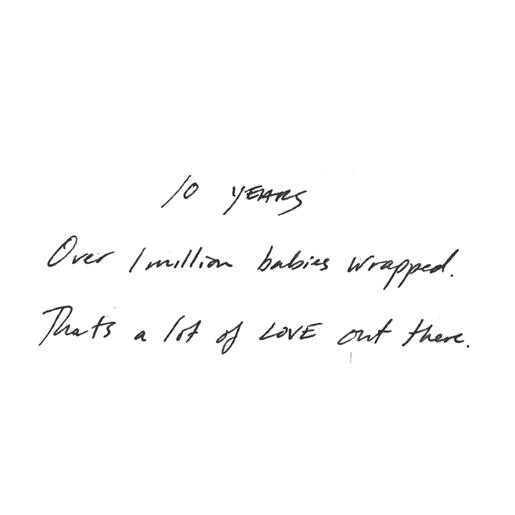 10 YEARS
Over 1 million babies wrapped.
Thats a lot of LOVE out there.